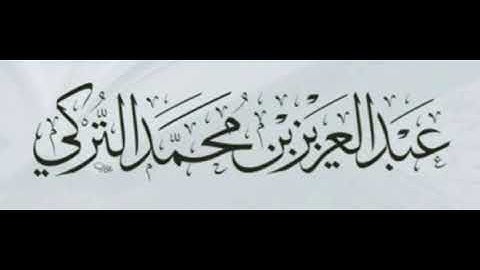 عَبْدالعَزِيْز بْن مُحَمَّد التُّرْكِي